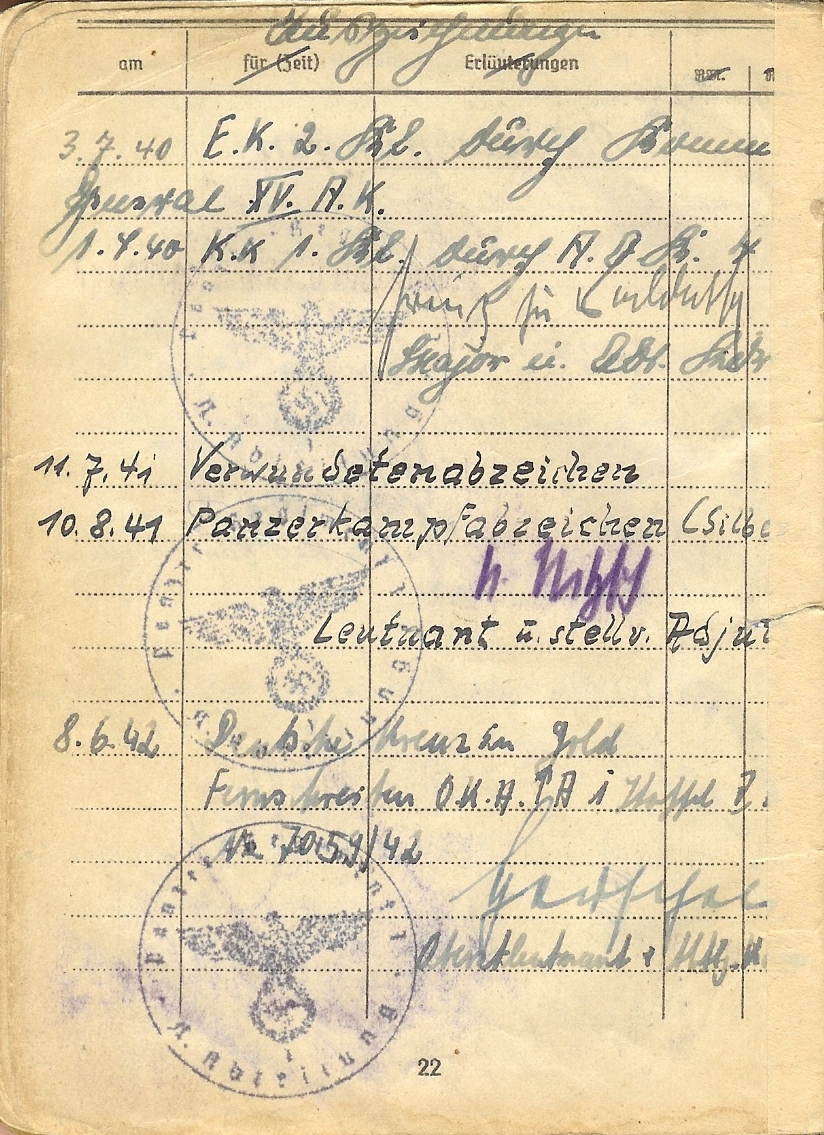 Auszeichnungen
am für (Zeit) Erläuterungen RM.
3.7.40 E.K. 2. Kl. durch Komm
General XV. A.K.
1.7.40 K.K 1. Kl. durch A.O.K. 4
Prinz zu
Major u. Adr.
11.7.41 Verwundetenabzeichen
10.8.41 Panzerkampfabzeichen (Silbe
Leutnant u. stellv. Adjut
8.6.42 Deutsche Kreuz in Gold
Fernschreiben O.K.H. PA 1 Staffel
Nr. 7059/42
Oberstleutnant
A. Abteilung
22